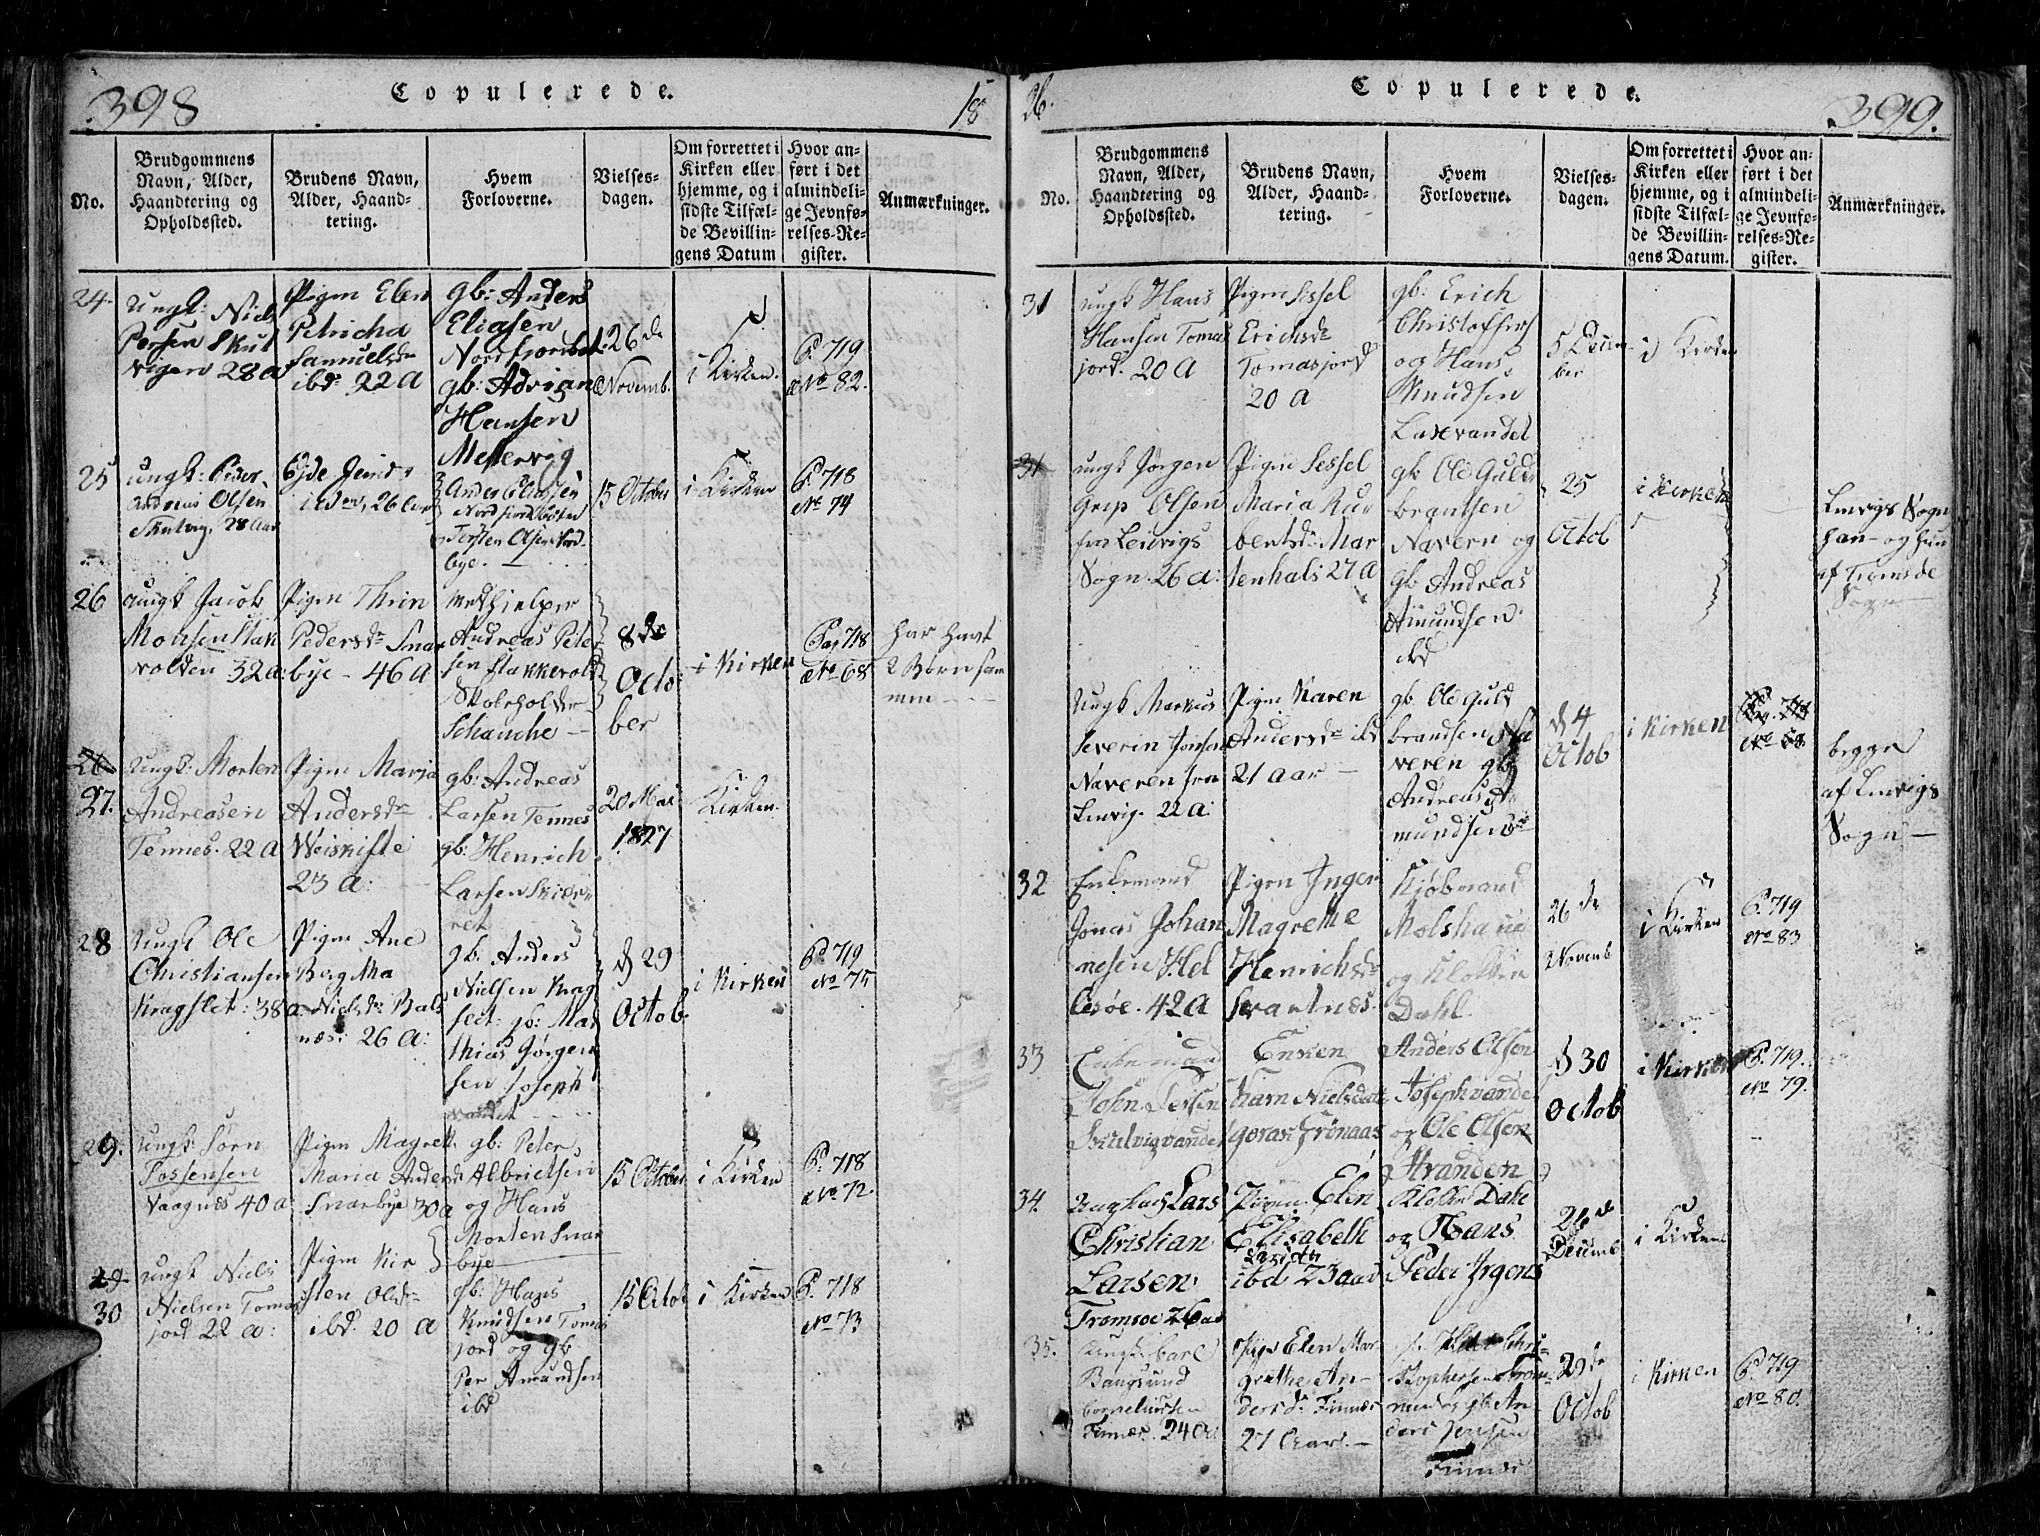 398
Copulerede.
18
No.
Brudgommens
Navn, Alder,
Haandtering og
Opholdssted.
Brudens Navn,
Alder, Haand-
tering.
Hvem
Forloverne.
Vielses-
dagen.
Om forrettet i
Kirken eller
hjemme, og i
sidste Tilfæl-
de Bevillin-
gens Datum
Hvor an-
ført i det
almindeli-
ge Jevnfø-
relses-Re-
gister.
Anmærkninger.
24.
Ungk: Niels
Persen Skul
vigen 28 a
Pigen Elen
Petricha
Samuelsdr
ibd: 22 A
gb: Anders
Eliasen
Nordfjordbot.
gb: Adrian
Hansen
Mestervig
26 de
Novemb.
i Kirken.
P. 719
No 82.
25
Ungk: Peder
Andreas Olsen
Skulvig, 28 Aar
26 Aar
Anders Eliassen
Nordfjordbotn
Torsten Olsen
bye.
15 October
i Kirken
P. 718
No 74
26
Ungk Jacob
Monsen Stak
volden 32 a:
Pigen Thrin
Pedersdr Snar
bye - 46 A
Medhjelper
Andreas Peter
sen Stakkevold
Skoleholder
Schanche -
8 de
Octo
ber
i Kirken
Pag 718
No 68
har havt
2 Børn sam
men
26
27.
Ungk: Morten
Andreasen
Tennes. 22 A
Pigen Maria
Andersdr
Weiskifte
23 A:
gb: Andreas
Larsen Tennes
gb: Henrich
Larsen Skier
ret
20 Mai
1827
Kirken.
28
Ungk Ole
Christiansen
Kragslet: 38 a
Pigen Ane
Berg Ma
Nielsdr Bals
næs: 26 A:
gb: Anders
Nielsen Krag
slet: gb: Mat
thias Jørgen
sen Joseph
vandet
d 29
Octob
i Kirken
P. 719
No 75
29.
Ungk: Sørn
Possensen
Vaagnæs 40 a
Pigen Magret
Maria Andersd
Snarbye 30 a
gb: Peter
Albrietsen
og Hans
Morten Snar
bye
15 October
i Kirken
P. 718
No 72.
29
30
Ungk Niels
Nielsen Tomas
jord 22 a:
Pigen Kir
sten Olsdr
ibd. 20 A
gb: Hans
Knudsen Tomas
jord og gb
Per Amundsen
ibd
15 Octob
i Kirken
P. 718
No 73
26.
Copulerede.
399.
No.
Brudgommens
Navn, Alder,
Haandtering og
Opholdssted.
Brudens Navn,
Alder, Haand-
tering.
Hvem
Forloverne.
Vielses-
dagen.
Om forrettet i
Kirken eller
hjemme, og i
sidste Tilfæl-
de Bevillin-
gens Datum.
Hvor an-
ført i det
almindeli-
ge Jevnfø-
relses-Re-
gister.
Anmærkninger.
31
Ungk Hans
Hansen Tomas
jord. 20 A
Pigen Sissel
Erichsdr
Tomasjord
20 A
gb: Erich
Christoffers
og Hans
Knudsen
Laxevandet
5 Decem
ber
i Kirken
31
Ungk Jørgen
Grip Olsen
fra Lenvigs
Sogn. 26 a:
Pigen Sessel
Maria Rur
bentsdr Mar
tenhals 27 A
gb: Ole Guld
brantsen
Navern og
gb: Andreas
Amundsen
ibd
25
Octob
i Kirken
Lenvigs Sogn
han - og hun
af Tromsøe
Sogn
Ungk Markus
Severin Jonsen
Naveren fra
Lenvig. 22 A:
Pigen Karen
Andersdr ibd
21 aar -
gb. Ole Guld
brandsen Na
veren gb
Andreas A
mundsen
d 4
Octob
i Kirken
begge
af Lenvigs
Sogn -
32
Enkemand
Jonas Johan
nesen Hel
lesøe. 42 A
Pigen Inger
Magrethe
Henrichsdr
Svartnes.
Kjøbmand
Molshaue
og Klokker
Dahl.
26 de
Novemb
i Kirken
P. 719
No 83
33
Enkemand
John Persen
Skulvigvandet
Enken
Karn Nielsdatr
Grønaas
Anders Olsen
Josephvandet
og Ole Olsen
Stranden
d 30
Octob
i Kirken
P. 719.
No 79.
34.
Ungkarl Lars
Christian
Larsen
Tromsøe 26 aar
Pigen Elen
Elisabeth
Larsdtr
ibd 23 aar
Klokker Dahl
og Hans
Peder Irgens
26 de
Decemb
i Kirken
35.
Ungk: Carl
Bangsund
Cornelius­sen
Finnæs. 24 A:
Pige Elen Mar
grethe An-
dersdr Finnæs
27 Aar. -
Chri-
stophersen Trom-
gb: An
ders Jensen
Finnæs
29 de
Octob
i Kirken
P. 719
No 80.